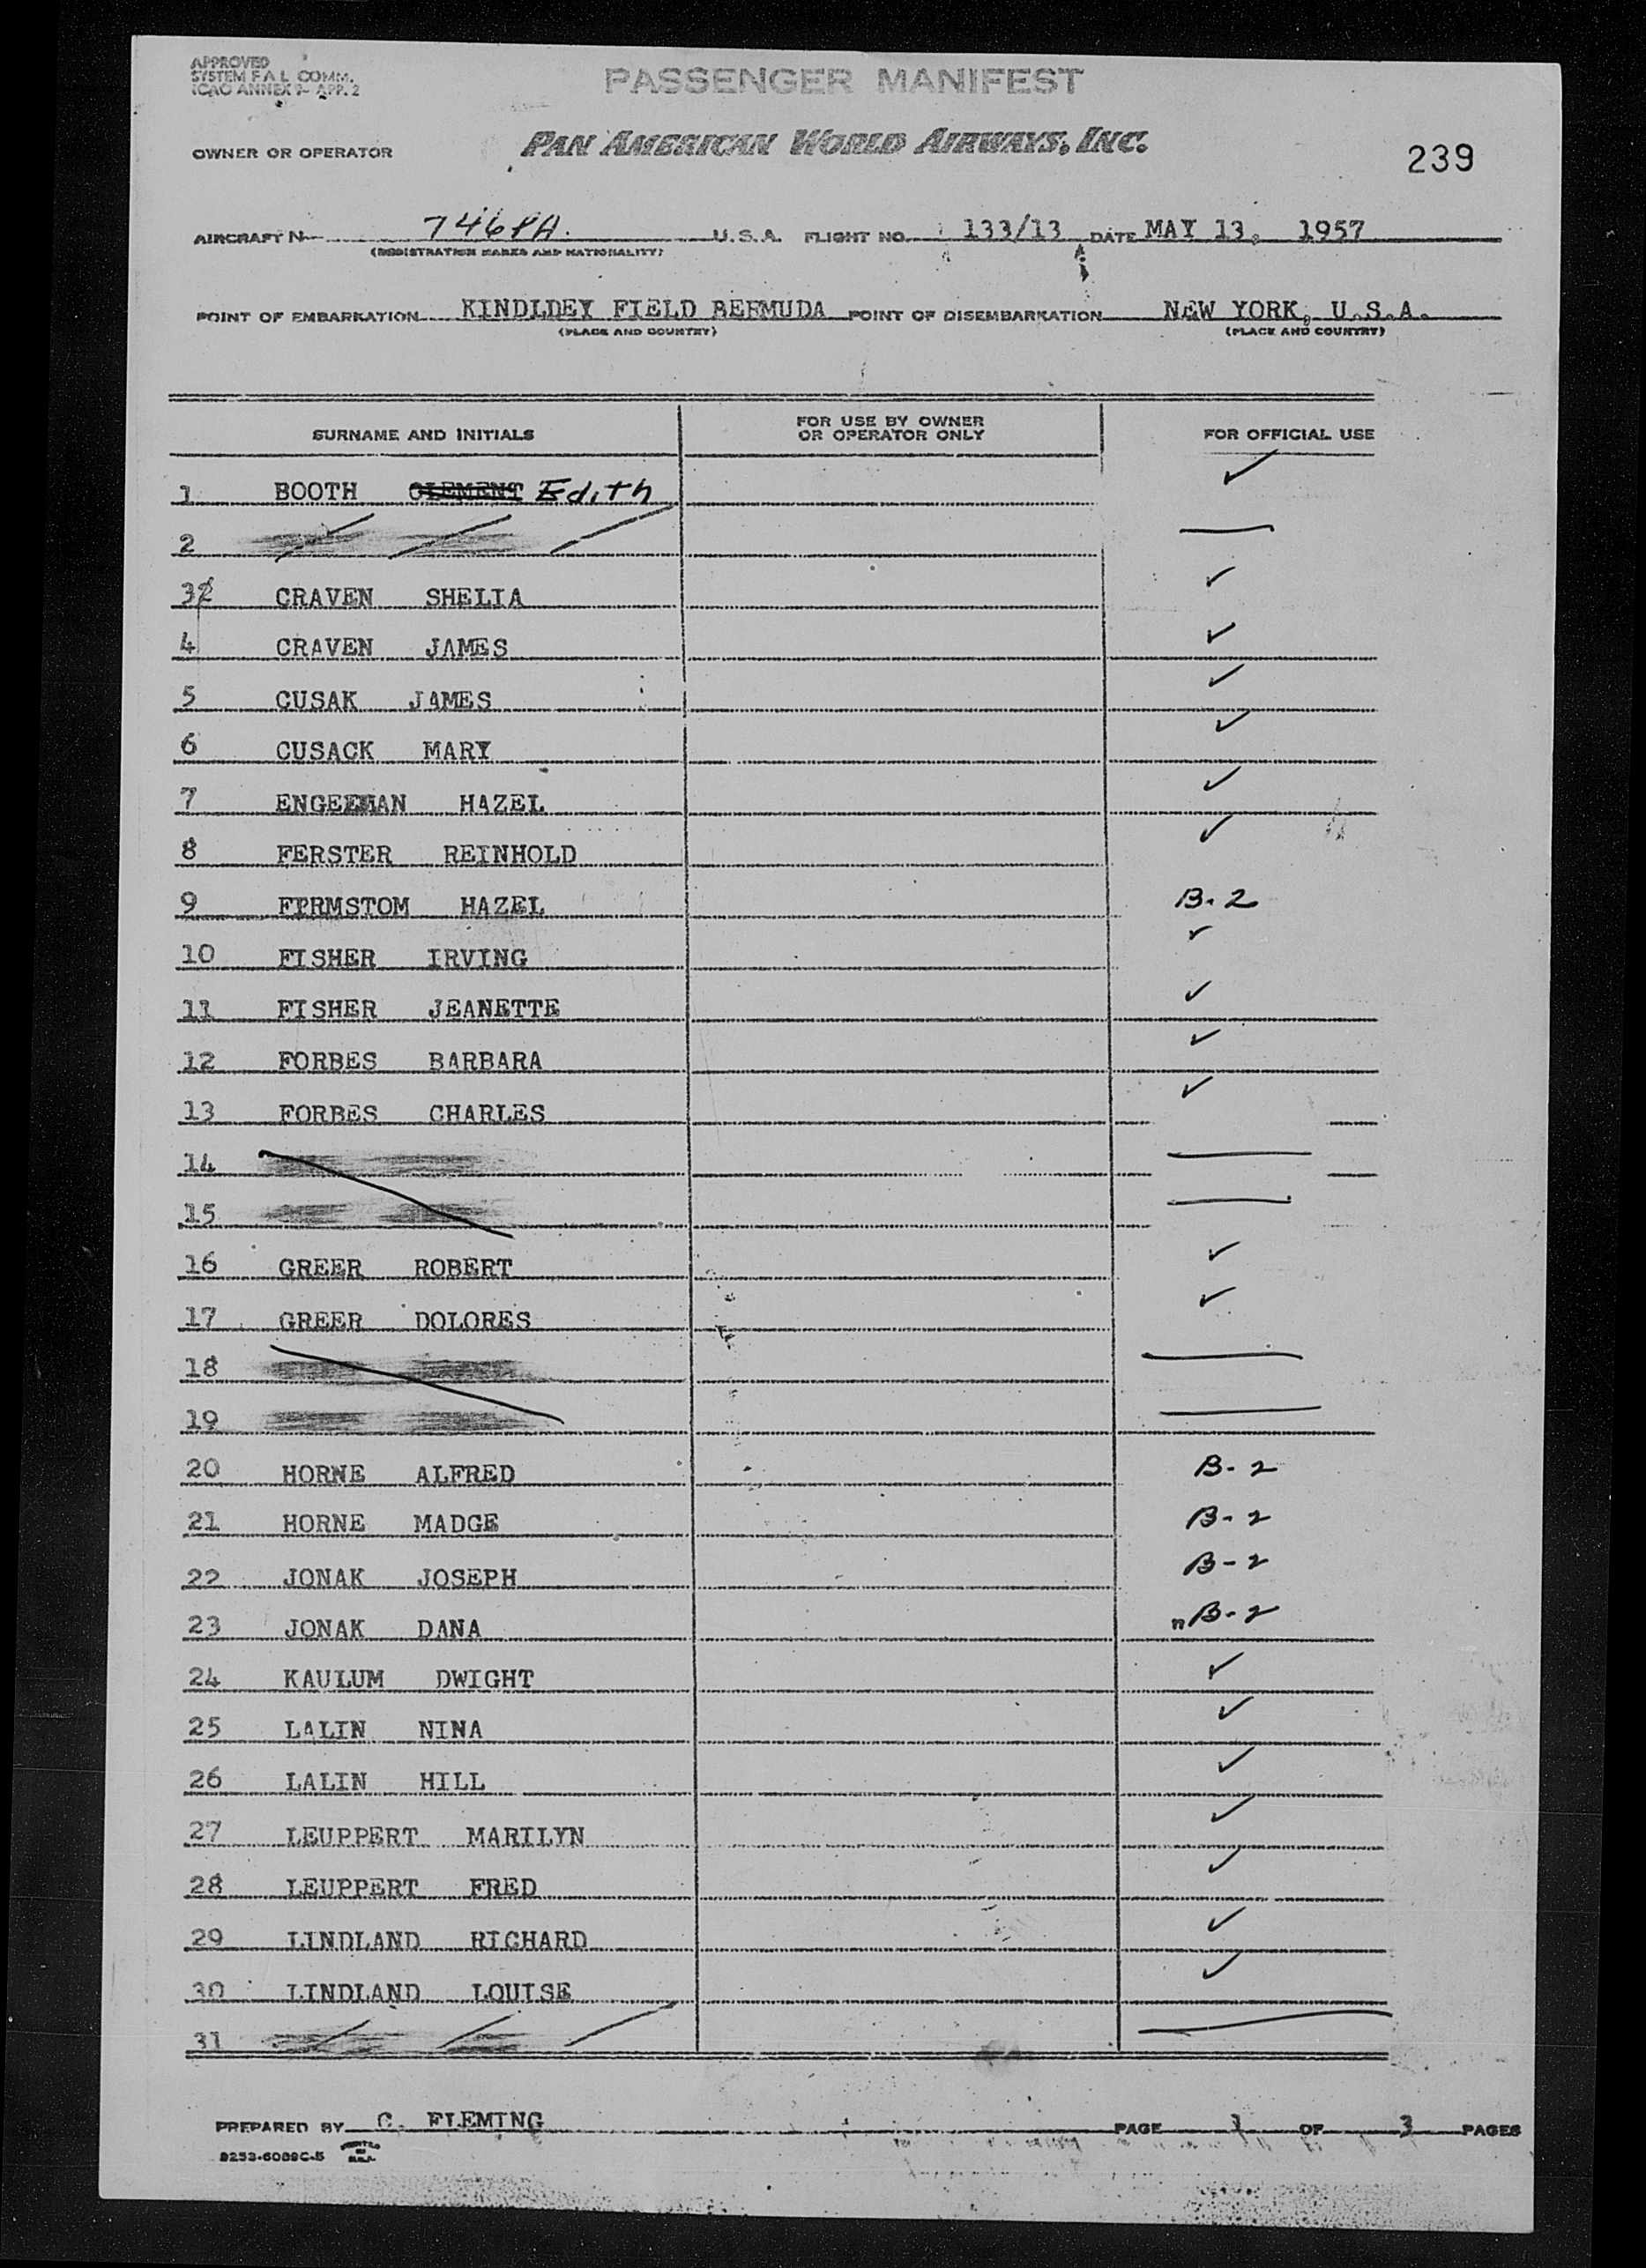 APPROVED
SYSTEM F A L COMM.
ICAO ANNEX 9- APP. 2
PASSENGER MANIFEST
OWNER OR OPERATOR PAN AMERICAN WORLD AIRWAYS, INC.
239
AIRCRAFT N 746PA. U.S.A. FLIGHT NO. 133/13 DATE MAY 13, 1957
(REGISTRATION MARKS AND NATIONALITY)
POINT OF EMBARKATION KINDLDEY FIELD BERMUDA POINT OF DISEMBARKATION NEW YORK, U.S.A.
(PLACE AND COUNTRY) (PLACE AND COUNTRY)
SURNAME AND INITIALS FOR USE BY OWNER OR OPERATOR ONLY FOR OFFICIAL USE
1 BOOTH CLEMENT Edith ✓
2
32 CRAVEN SHELIA ✓
4 CRAVEN JAMES ✓
5 CUSAK JAMES ✓
6 CUSACK MARY ✓
7 HAZEL ✓
8 FERSTER REINHOLD ✓
9 FIRMSTOM HAZEL B-2
10 FISHER IRVING ✓
11 FISHER JEANETTE ✓
12 FORBES BARBARA ✓
13 FORBES CHARLES ✓
14
15
16 GREER ROBERT ✓
17 GREER DOLORES ✓
18
19
20 HORNE ALFRED B-2
21 HORNE MADGE B-2
22 JONAK JOSEPH B-2
23 JONAK DANA B-2
24 KAULUM DWIGHT ✓
25 LALIN NINA ✓
26 LALIN HILL ✓
27 LEUPPERT MARILYN ✓
28 LEUPPERT FRED ✓
29 LINDLAND RICHARD ✓
30 LINDLAND LOUISE ✓
31
PREPARED BY C. FLEMING PAGE 1 OF 3 PAGES
9253-6089C-5 PRINTED IN U.S.A.